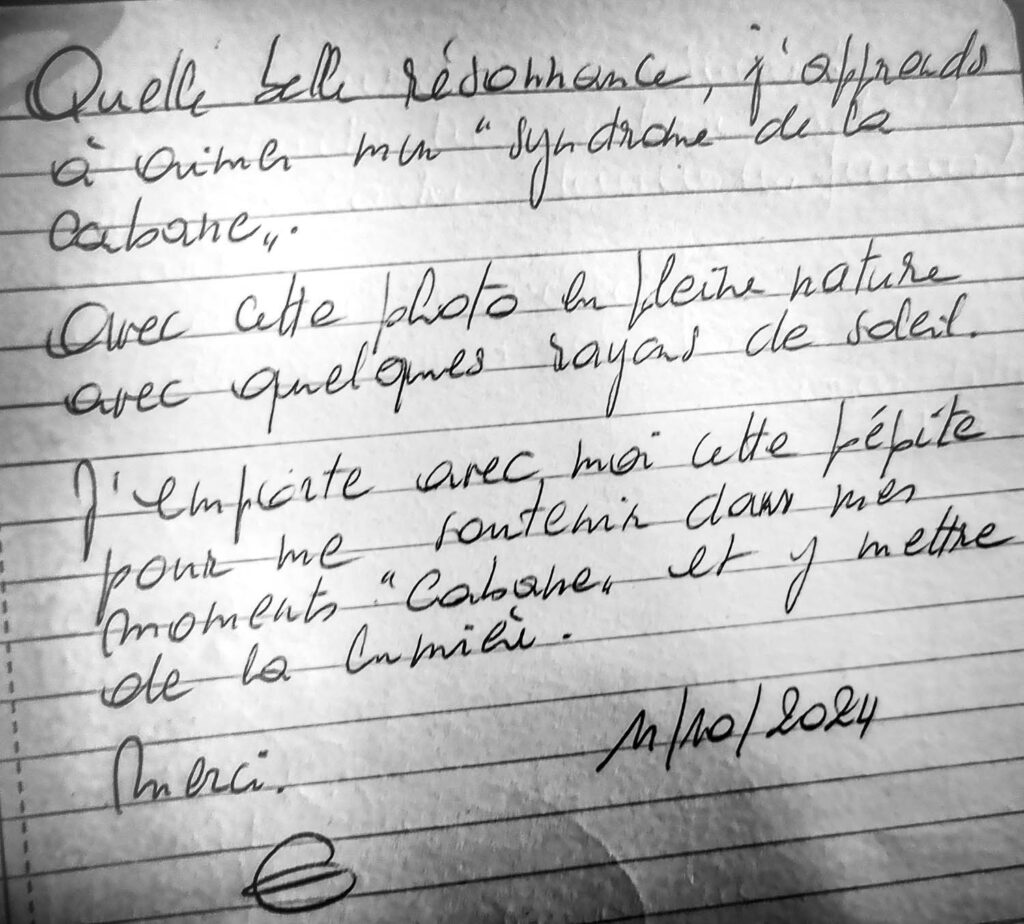 Quelle belle résonnance, j'apprends
à aimer mon "syndrome de la
cabane".
Avec cette photo en pleine nature
avec quelques rayons de soleil.
J'emporte avec moi cette pépite
pour me soutenir dans mes
moments "Cabane" et y mettre
de la lumière.
Merci. 11/10/2024